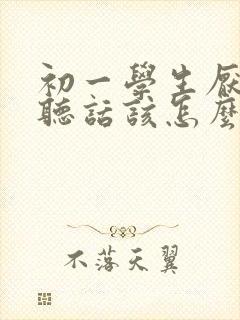 初一學生厭
聽話該怎麼
不落天翼